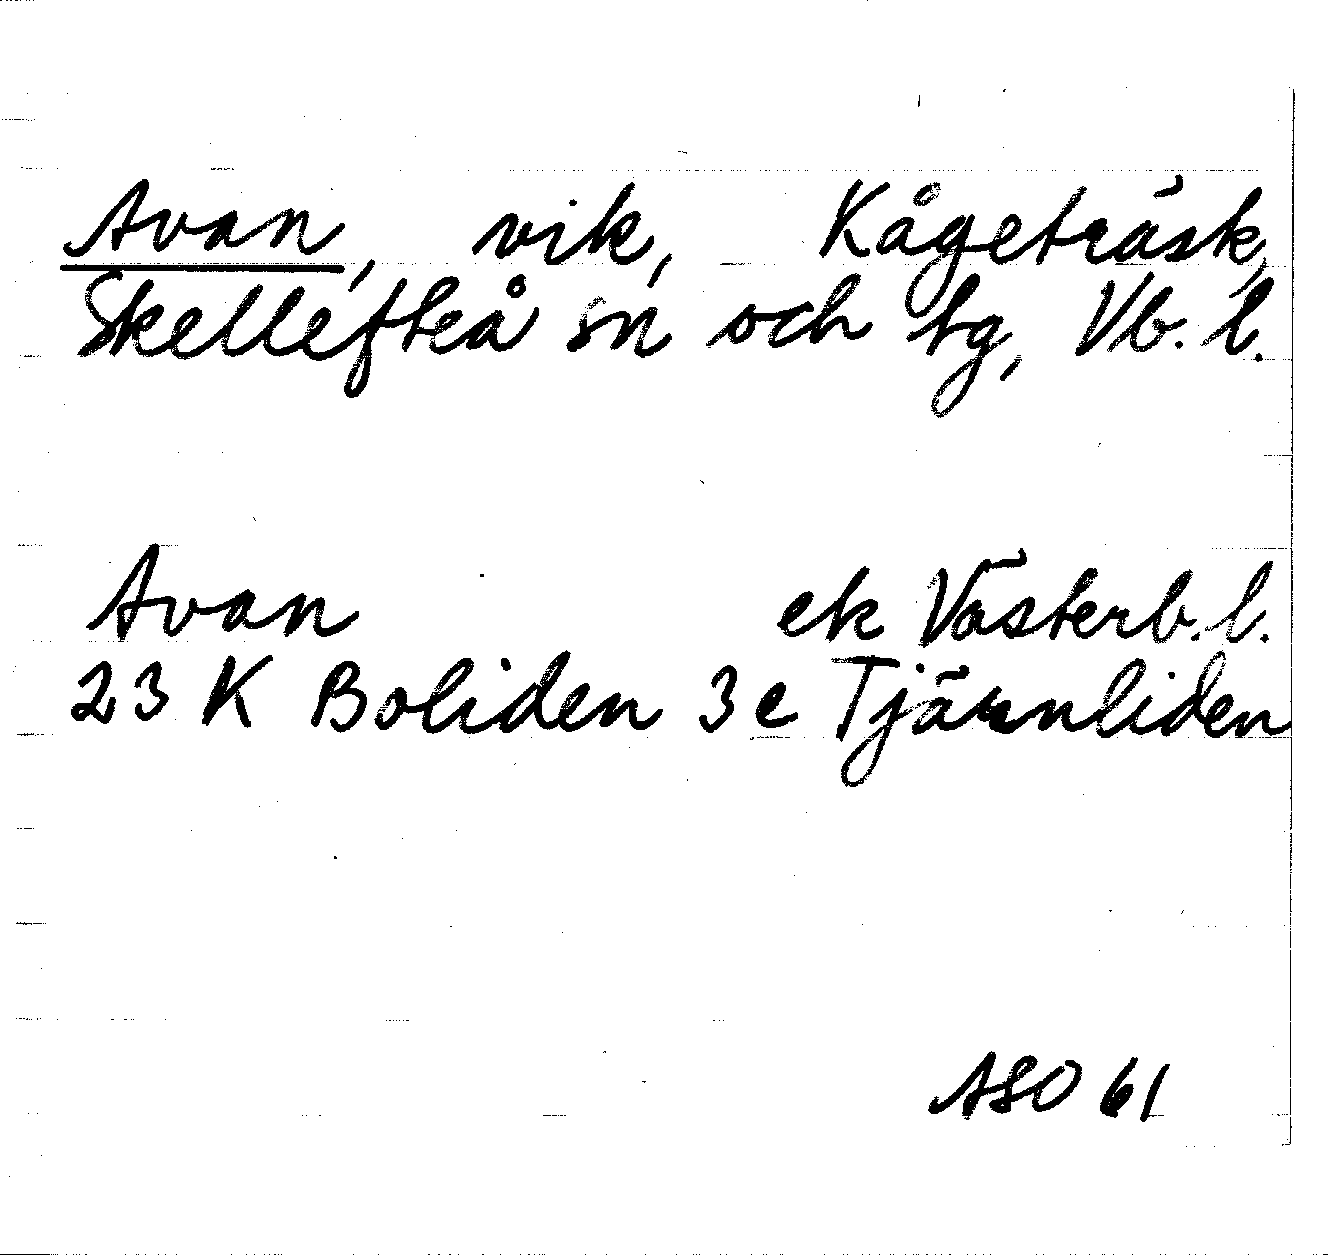 Avan, vik, Kågeträsk,
Skellefteå sn och tg, Vb. l.
Avan ek Västerb. l.
23 K Boliden 3 e Tjärnliden
ASO 61